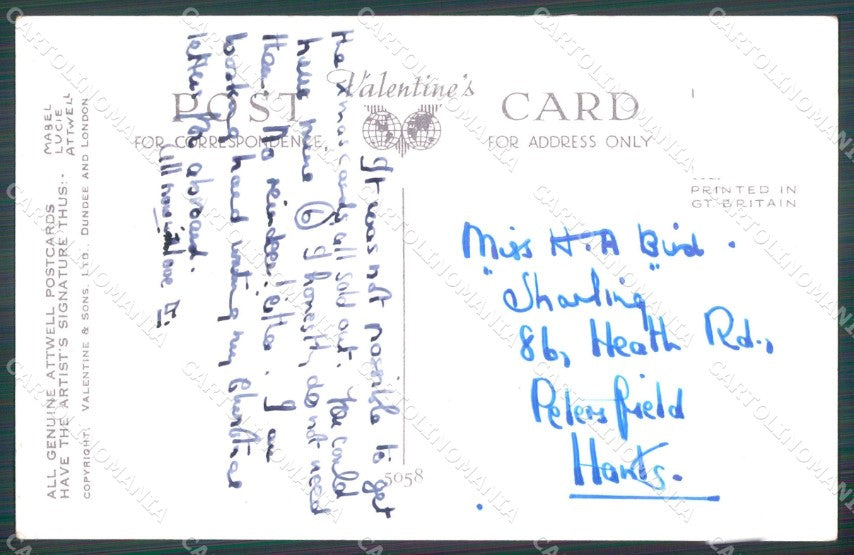 Valentine's
POST CARD
FOR CORRESPONDENCE
FOR ADDRESS ONLY
PRINTED IN
GT BRITAIN
It was not possible to get
the Xmas cards, all sold out. You could
have mine (6) I honestly do not need
them. No reindeer either. I am
working hard writing my Christmas
letters for abroad.
All love
Miss H. A Bird.
"Sharling"
86, Heath Rd.,
Petersfield
Hants.
5058
ALL GENUINE ATTWELL POSTCARDS
HAVE THE ARTIST'S SIGNATURE THUS:-
MABEL
LUCIE
ATTWELL
COPYRIGHT. VALENTINE & SONS. LTD., DUNDEE AND LONDON
CARTOLINOMANIA